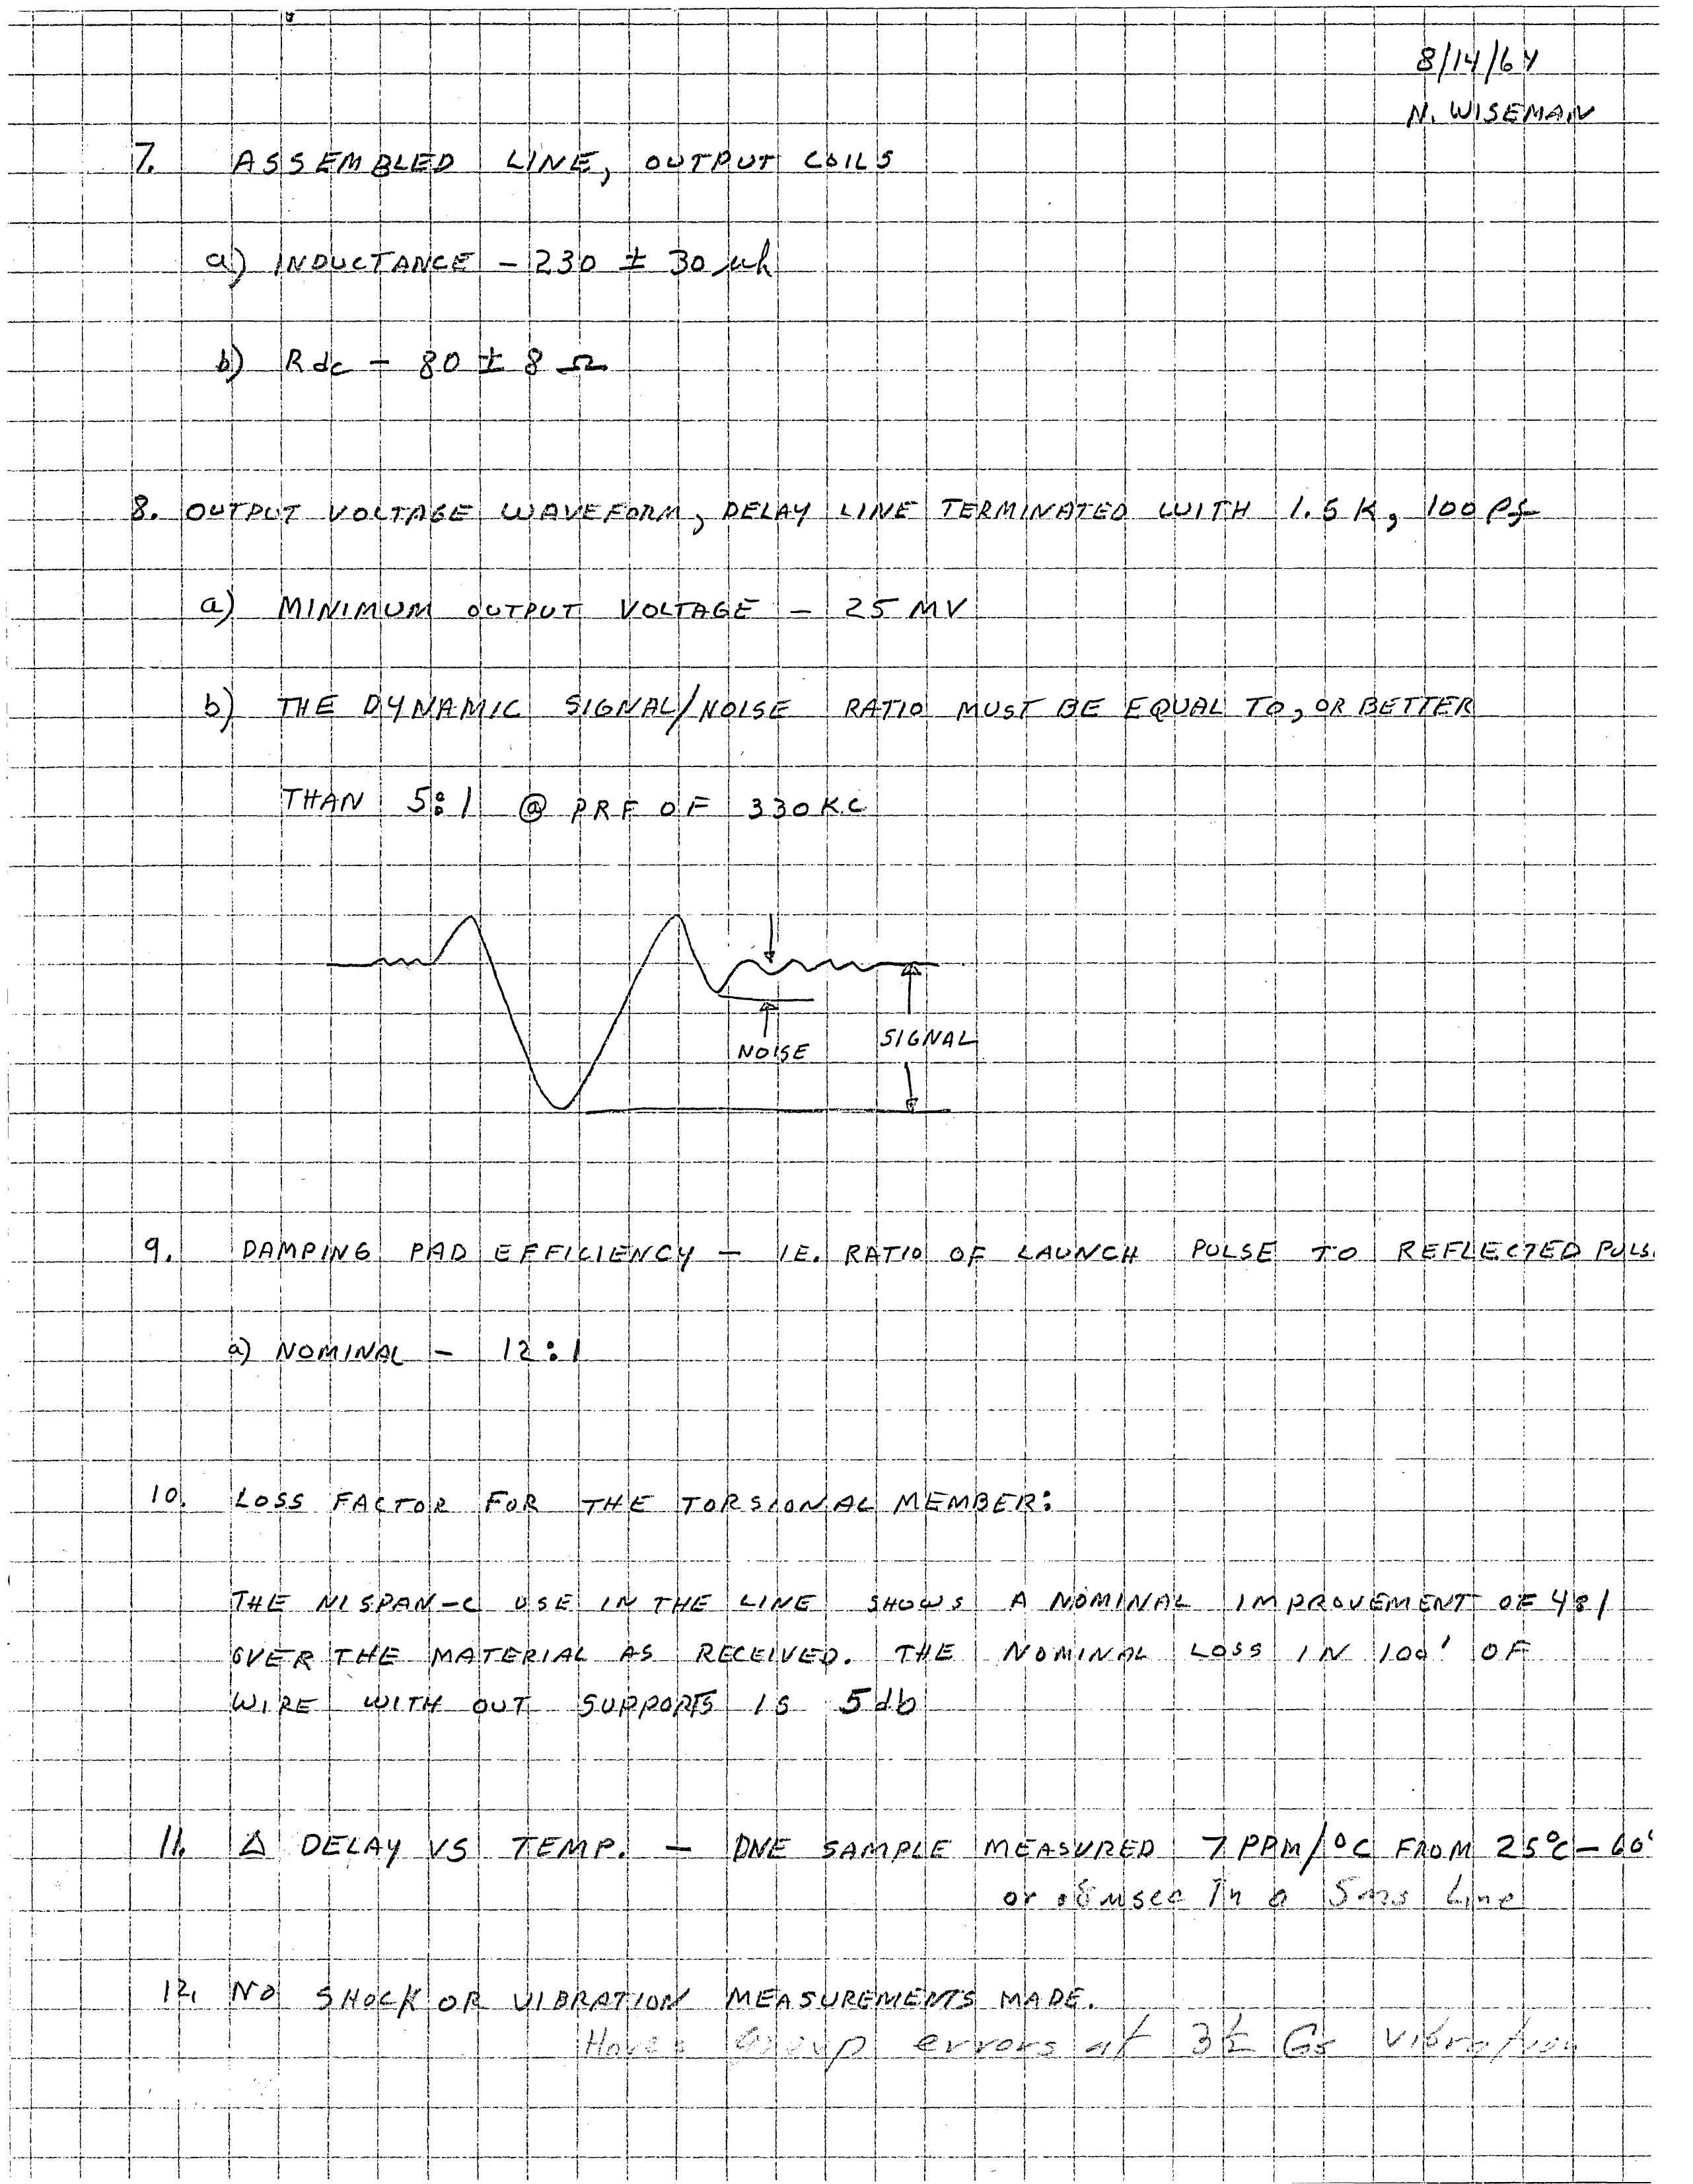 8/14/64
N. WISEMAN
7. ASSEMBLED LINE, OUTPUT COILS
a) INDUCTANCE - 230 ± 30 µh
b) Rdc - 80 ± 8 Ω
8. OUTPUT VOLTAGE WAVEFORM, DELAY LINE TERMINATED WITH 1.5 K, 100 Pf
a) MINIMUM OUTPUT VOLTAGE - 25 MV
b) THE DYNAMIC SIGNAL/NOISE RATIO MUST BE EQUAL TO, OR BETTER
THAN 5:1 @ PRF OF 330 KC
NOISE
SIGNAL
9. DAMPING PAD EFFICIENCY - IE. RATIO OF LAUNCH PULSE TO REFLECTED PULS
a) NOMINAL - 12:1
10. LOSS FACTOR FOR THE TORSIONAL MEMBER:
THE NISPAN-C USE IN THE LINE SHOWS A NOMINAL IMPROVEMENT OF 4:1
OVER THE MATERIAL AS RECEIVED. THE NOMINAL LOSS IN 100' OF
WIRE WITH OUT SUPPORTS IS 5db
11. Δ DELAY VS TEMP. - ONE SAMPLE MEASURED 7 PPM/°C FROM 25°C - 60°
or µsec In a 5ms Line
12. NO SHOCK OR VIBRATION MEASUREMENTS MADE.
errors at 3½ Gs vibration